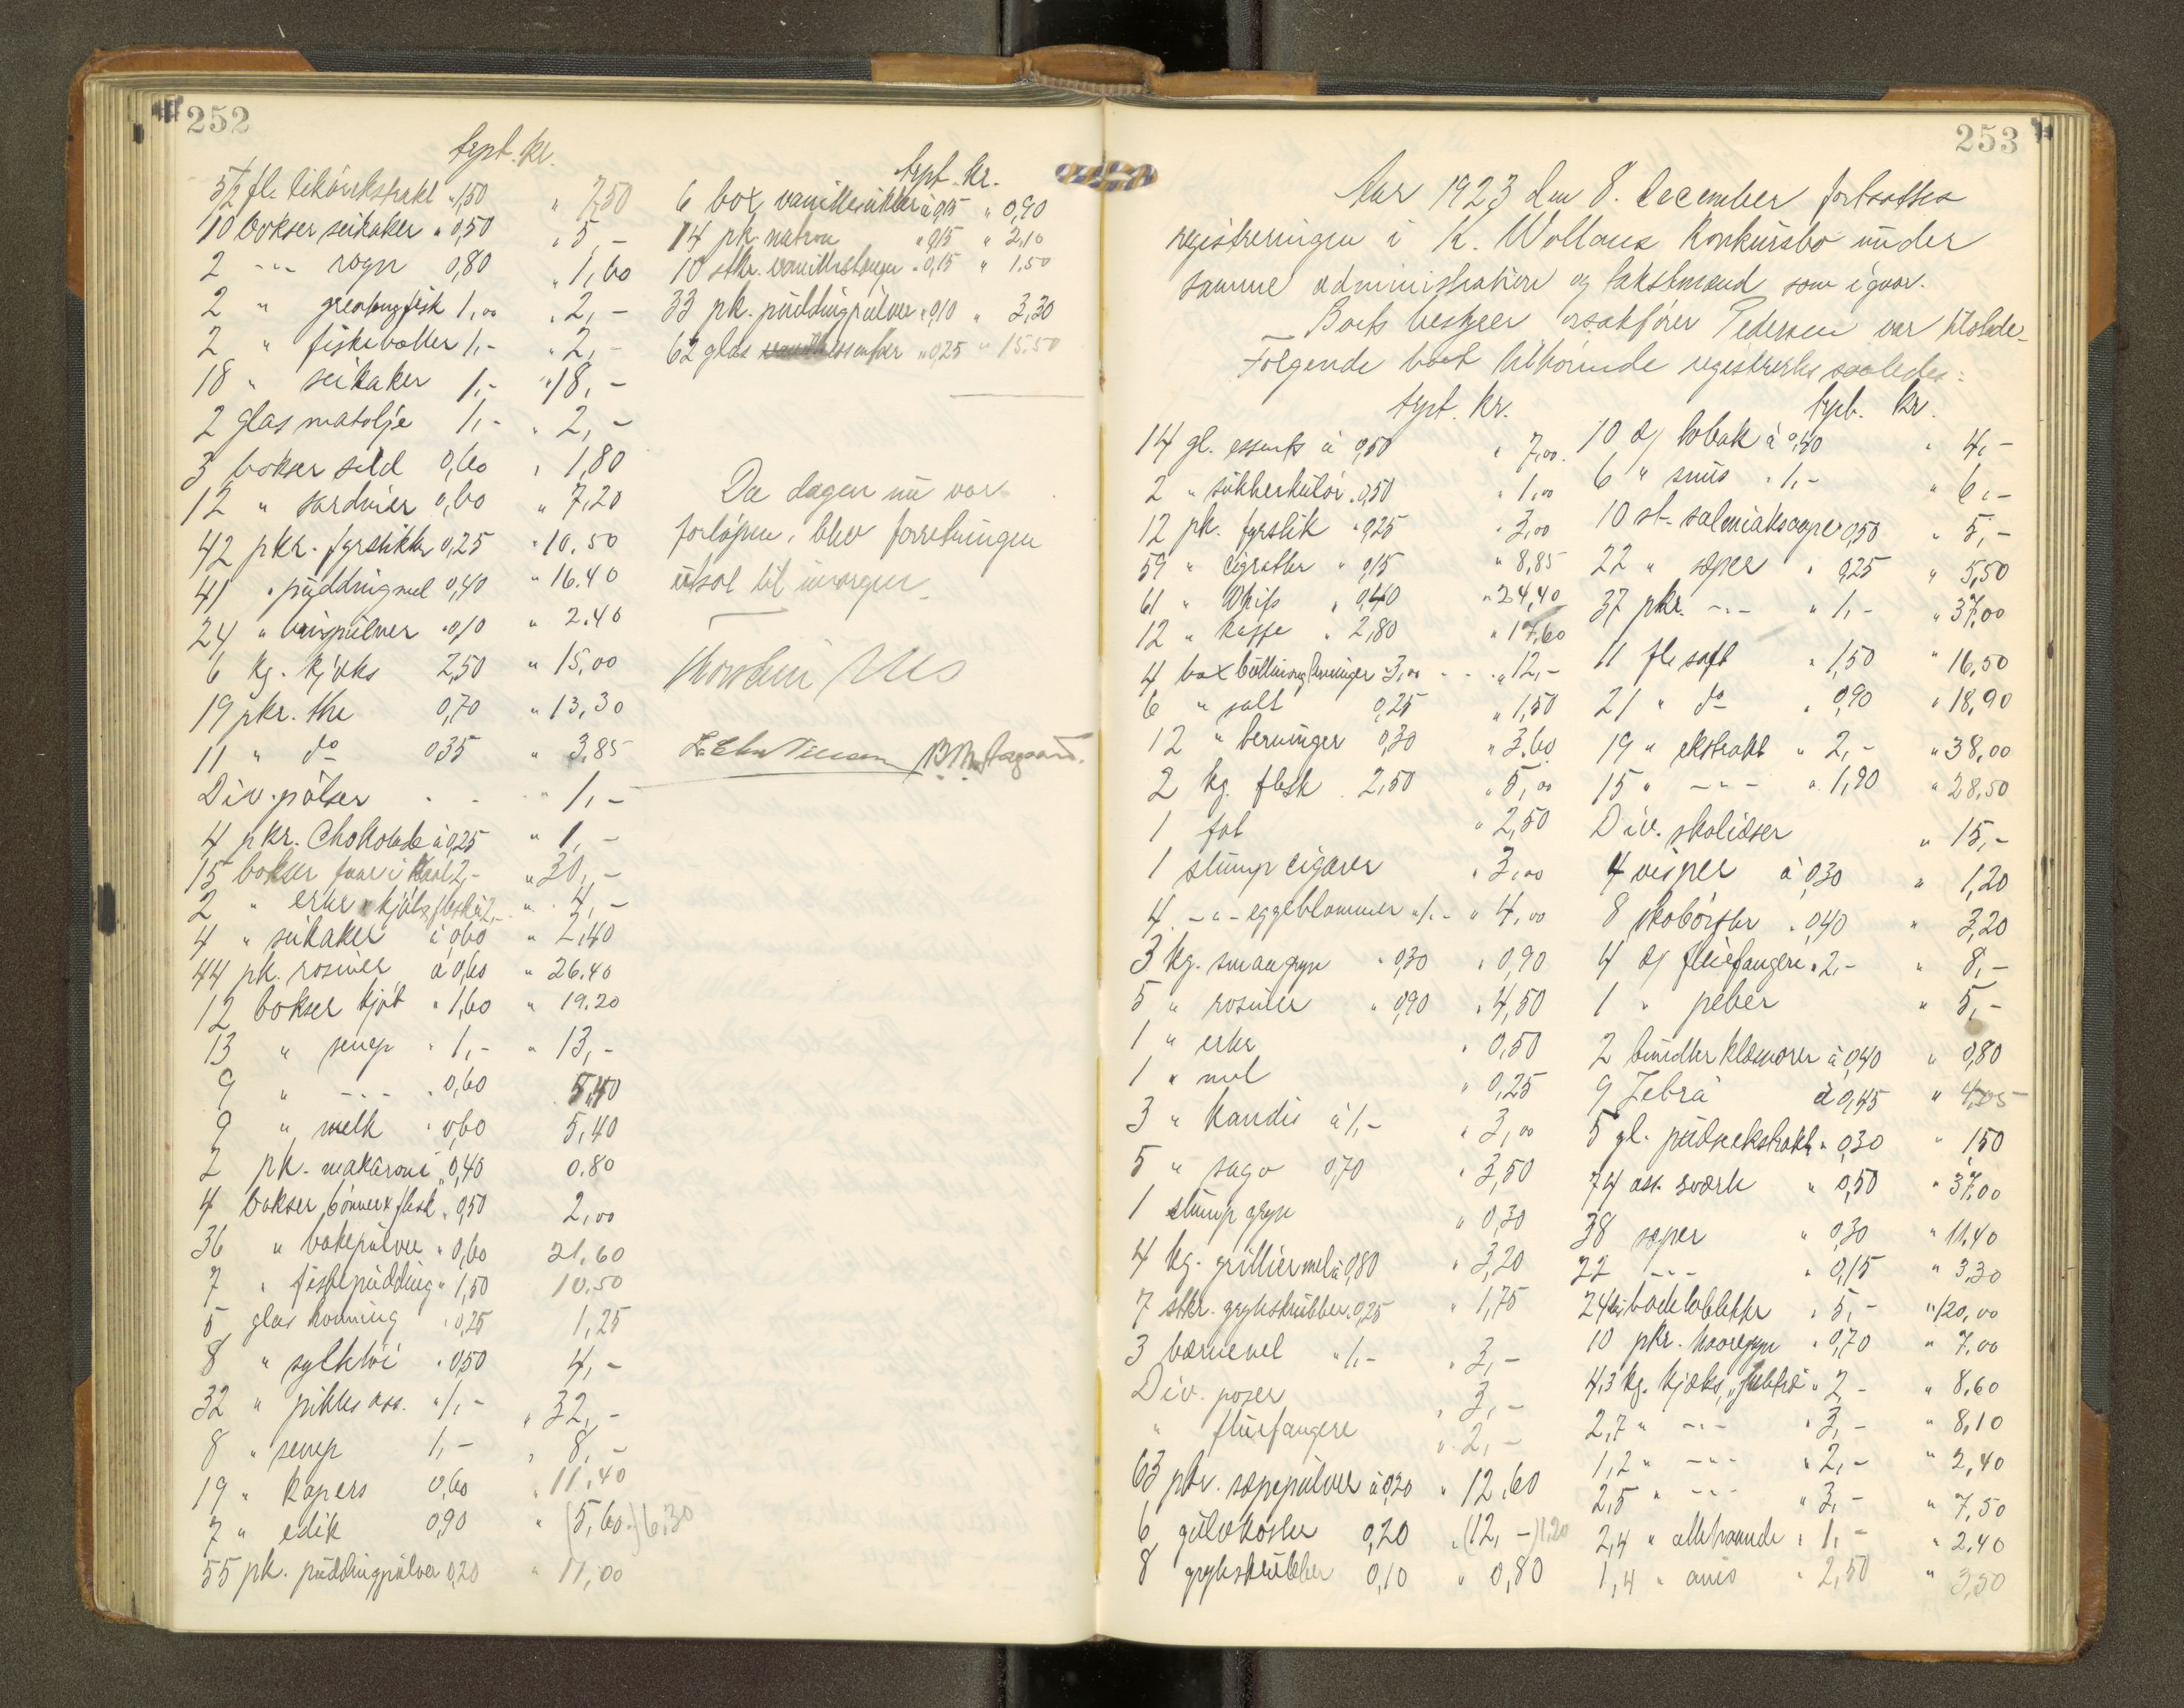 252
typt. kr.
5/2 fl. likörekstrakt " 1,50 " 7,50
10 bokser seikaker " 0,50 " 5,-
2 -"- rogn 0,80 " 1,60
2 " 1,00 " 2,-
2 " fiskeboller 1,- " 2,-
18 " seikaker 1,- " 18,-
2 glas matolje 1,- " 2,-
3 bokser sild 0,60 " 1,80
12 " sardiner 0,60 " 7,20
42 pkr. fyrstikker 0,25 " 10.50
41 " puddingmel 0,40 " 16.40
24 " " 0,10 " 2.40
6 kg. kjæks 2,50 " 15,00
19 pkr. the 0,70 " 13,30
11 " do 0,35 " 3,85
Div. pølser " 1,-
4 pkr. Chokolade à 0,25 " 1,-
15 bokser faar i kaal 2,- " 30,-
2 " erter kjöt & flesk à 2,- " 4,-
4 " seikaker à 0,60 " 2,40
44 pk. rosiner à 0,60 " 26.40
12 bokser kjöt " 1,60 " 19.20
13 " senep " 1,- " 13,-
9 " -"- " 0,60 5,40
9 " melk " 0,60 5,40
2 pk. makaroni " 0,40 0.80
4 bokser bönner & flesk " 0,50 2,00
36 " bakepulver " 0,60 21.60
7 " fiskepudding " 1,50 10.50
5 glas honning " 0,25 1,25
8 " syltetöi " 0,50 4,-
32 " pikles ass. " 1,- " 32,-
8 " senep 1,- " 8,-
19 " Kapers 0,60 " 11,40
7 " edik 0,90 " (5,60) 6,30
55 pk. puddingpulver 0,20 " 11,00
typt. kr.
6 box vanillesukker à 0,15 " 0,90
14 pk. natron " 0,15 " 2,10
10 stkr. vanillestenger " 0,15 " 1.50
33 pk. puddingpulver " 0,10 " 3,30
62 glas essenser " 0,25 " 15.50
Da dagen nu var
forløpen, blev forretningen
utsat til imorgen.
253
Aar 1923 den 8. december fortsattes
registreringen i K. Wollans Konkursbo under
samme administration og takstmænd som igaar.
Boets bestyrer orsakfører Pedersen var tilstede.
Følgende boet tilhörende registrertes saaledes:
typt. kr.
14 gl. essents à 0,50 " 7,00
2 " sukkerkulör " 0,50 " 1,00
12 pk. fyrstik " 0,25 " 3,00
59 " cigratter " 0,15 " 8,85
61 " Whifs " 0,40 " 24,40
12 " kaffe " 2,80 " 17,60
4 box buttinger 3,00 " 12,-
6 " salt 0,25 " 1,50
12 " terninger 0,30 " 3.60
2 kg. flesk 2,50 " 5,00
1 fat " 2,50
1 stump cigarer " 3,00
4 -"- eggeblommer " 1.- " 4,00
3 kg. smaagryn " 0,30 " 0,90
5 " rosiner " 0,90 " 4,50
1 " erter " 0,50
1 " mel " 0,25
3 " kandis à 1,- " 3,00
5 " sago 0,70 " 3,50
1 stump gryn " 0,30
4 kg. grilliermel à 0,80 " 3,20
7 stkr. grytskrubber 0,25 " 1,75
3 " 1,- " 3,-
Div. poser " 3,-
" fluefangere " 2,-
63 pkr. sæpepulver à 0,20 " 12,60
6 gulvkoster 0,20 " (12,-) 1,20
8 grytskrubber 0,10 " 0,80
typt. kr.
10 tobak à 0,40 " 4,-
6 " snus " 1,- " 6,-
10 st. salmiaksæper 0,50 " 5,-
22 " sæper " 0,25 " 5,50
37 pkr. -"- " 1,- " 37,00
11 fl. saft " 1,50 " 16,50
21 " do " 0,90 " 18,90
19 " ekstrakt " 2,- " 38,00
15 " -"- " 1,90 " 28,50
Div. skolisser " 15,-
4 visper à 0,30 " 1,20
8 skobörster " 0,40 " 3,20
4 fluefangere " 2,- " 8,-
1 " peber " 5,-
2 bundter klæsnorer à 0,40 " 0,80
9 Zebra à 0,45 " 4,05
5 gl. pudsekstrakt " 0,30 " 1,50
74 æsk. sværte " 0,50 " 37,00
38 sæper " 0,30 " 11.40
22 -"- " 0,15 " 3.30
24 badetabletter " 5,- " 120,00
10 pkr. havregryn " 0,70 " 7,00
4,3 kg. kjæks, " 2,- " 8,60
2,7 " -"- " 3,- " 8,10
1,2 " -"- " 2,- " 2,40
2,5 " -"- " 3,- " 7,50
2,4 " allehaande " 1,- " 2,40
1,4 " anis " 2,50 " 3,50